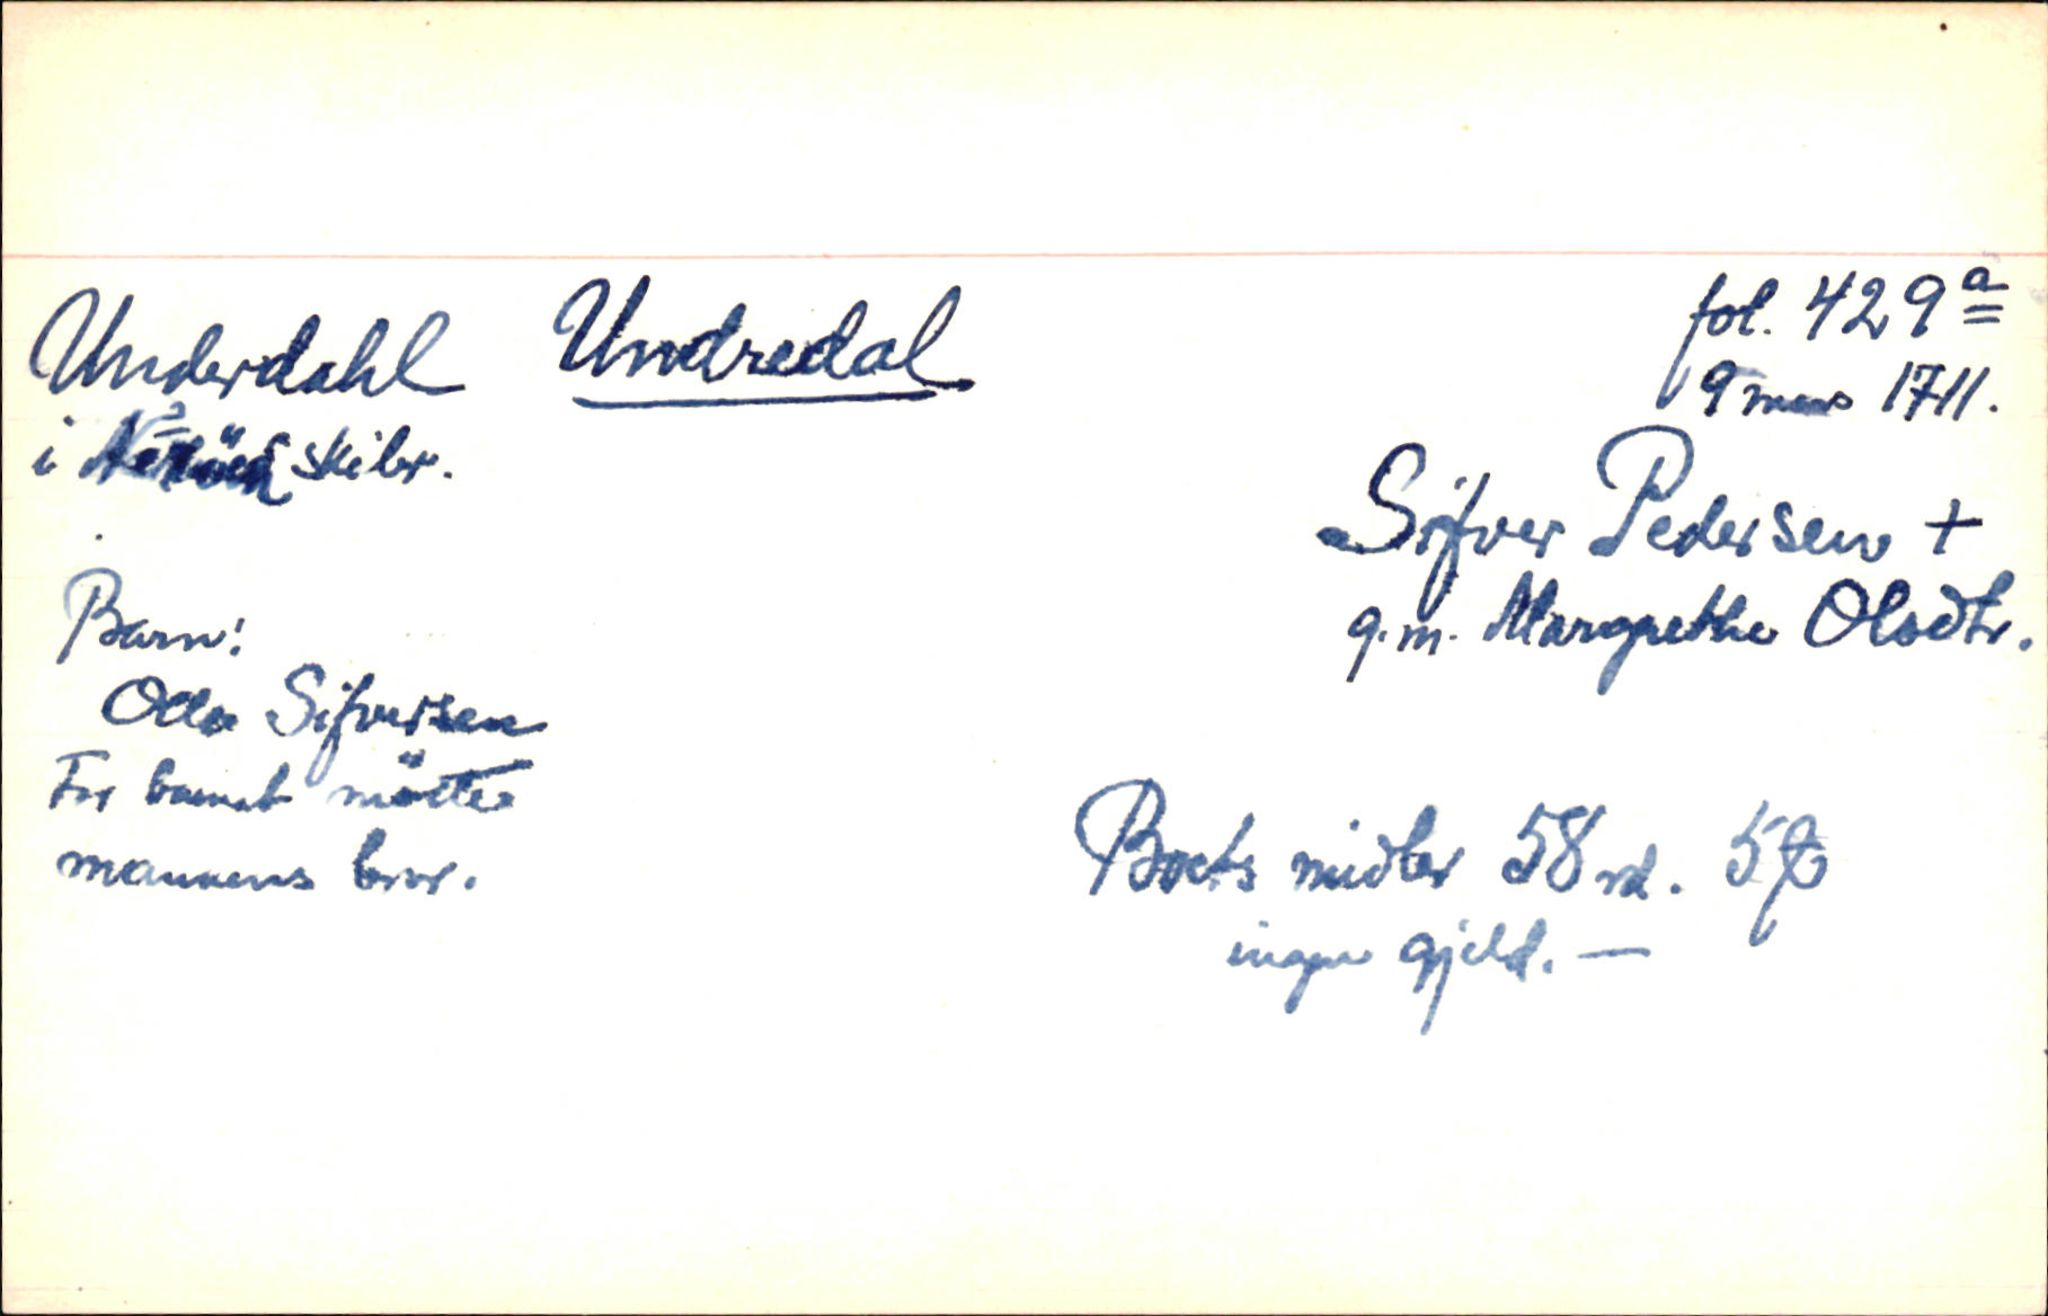 Underdahl Undredal
fol. 429a
9 mars 1711.
i skibr.
Sifver Pedersen +
g.m. Margrethe Olsdtr.
Barn:
Olla Sifversen
For barnet mötte
mannens bror.
Boets midler 58 rd. 5
ingen gjeld. —